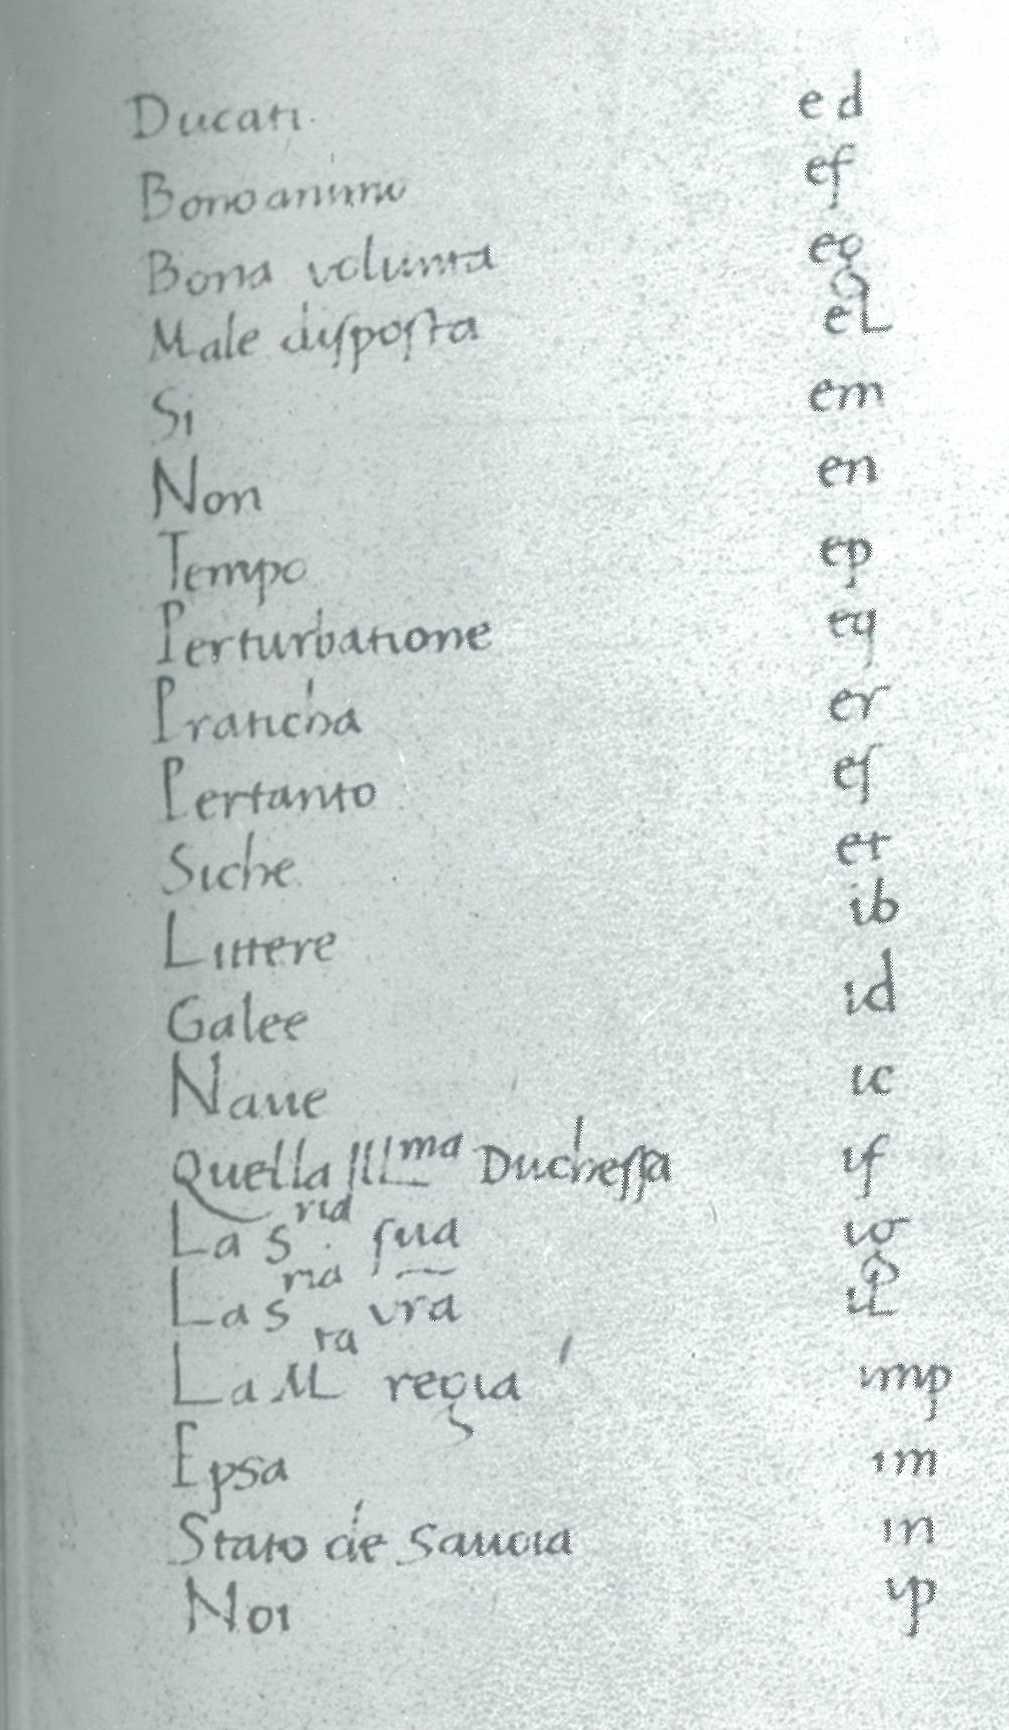 Ducati ed
Bono animo ef
Bona volunta eg
Male disposta el
Si em
Non en
Tempo ep
Perturbatione eq
Praticha er
Pertanto es
Siche et
Littere ib
Galee id
Naue ic
Quella Illma Duchessa if
La Sria sua ig
La Sria vra il
La Mra regia imp
Epsa im
Stato de Sauoia in
Noi ip